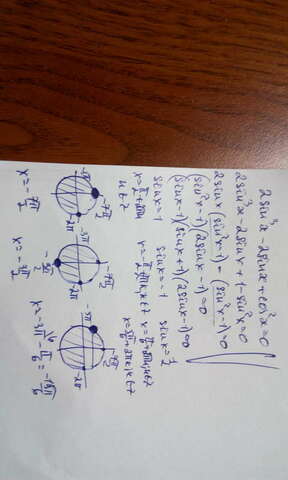 2sin³x-2sinx+cos²x=0
2sin³x-2sinx+1-sin²x=0
2sinx(sin²x-1)-(sin²x-1)=0
(sin²x-1)(2sinx-1)=0
(sinx-1)(sinx+1)(2sinx-1)=0
sinx=1 sinx=-1 sinx=½
x=π/2+2πn n∈Z
x=π/6+2πk, k∈Z
x=5π/6+2πk, k∈Z
-7π/2
-2π
x=-7π/2
-3π
-7π/2
-5π/2
-2π
x=-5π/2
-3π
-7π/2
-2π
x=-3π-π/6=-19π/6